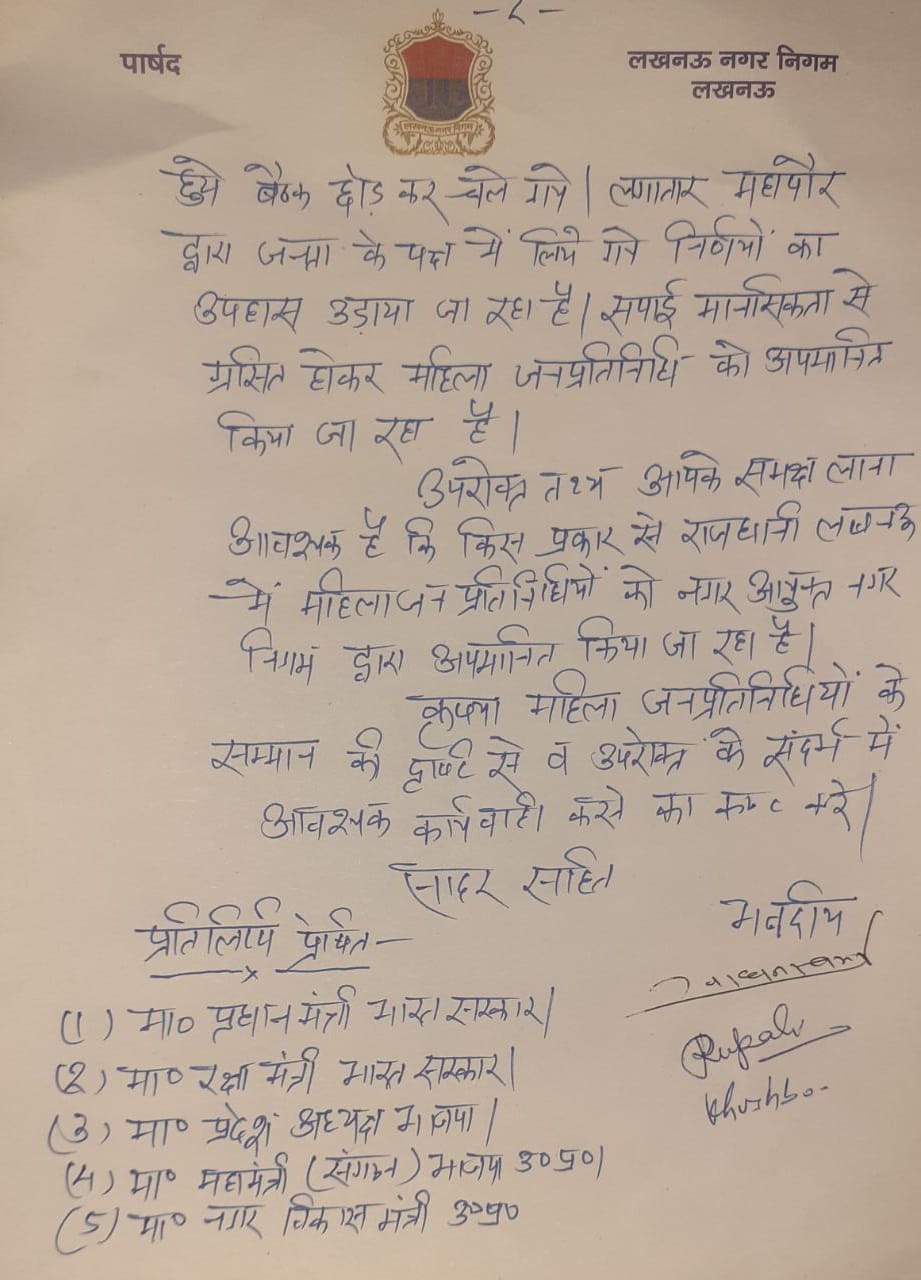 -२-
पार्षद
लखनऊ नगर निगम
लखनऊ
लखनऊ नगर निगम
हुये बैठक छोड़ कर चले गये। लगातार महापौर
द्वारा जनता के पक्ष में लिये गये निर्णयों का
उपहास उड़ाया जा रहा है। सपाई मानसिकता से
ग्रसित होकर महिला जनप्रतिनिधि को अपमानित
किया जा रहा है।
उपरोक्त तथ्य आपके समक्ष लाना
आवश्यक है कि किस प्रकार से राजधानी लखनऊ
में महिला जन प्रतिनिधियों को नगर आयुक्त नगर
निगम द्वारा अपमानित किया जा रहा है।
कृपया महिला जनप्रतिनिधियों के
सम्मान की दृष्टि से व उपरोक्त के संदर्भ में
आवश्यक कार्यवाही करने का कष्ट करें।
सादर सहित
भवदीय
प्रतिलिपि प्रेषित-
(1) मा० प्रधान मंत्री भारत सरकार।
(2) मा० रक्षा मंत्री भारत सरकार।
(3) मा० प्रदेश अध्यक्ष भाजपा।
(4) मा० महामंत्री (संगठन) भाजपा उ०प्र०।
(5) मा० नगर विकास मंत्री उ०प्र०
Rupali
Khushboo